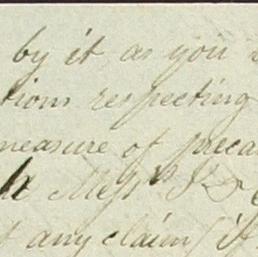 by it as you
tions respecting
measure of preca
Messrs J &
any claim, if